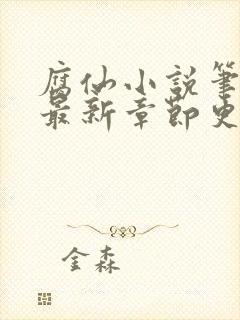 腐仙小説筆
最新章節史
金森